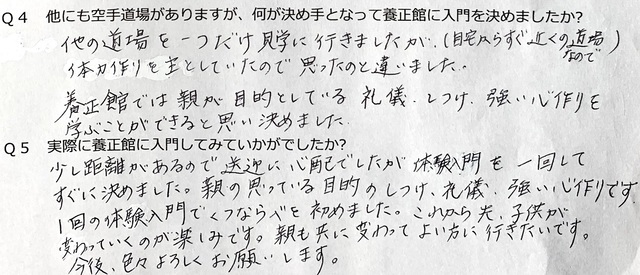 Q4 他にも空手道場がありますが、何が決め手となって養正館に入門を決めましたか?
他の道場を一つだけ見学に行きましたが、(自宅からすぐ近くの道場なので)
体力作りを主としていたので思ったのと違いました。
養正館では親が目的としている礼儀、しつけ、強い心作りを
学ぶことができると思い決めました。
Q5 実際に養正館に入門してみていかがでしたか?
少し距離があるので送迎に心配でしたが体験入門を一回して
すぐに決めました。親の思っている目的のしつけ、礼儀、強い心作りです
1回の体験入門でくつならべを初めました。これから先、子供が
変わっていくのが楽しみです。親も共に変わってよい方に行きたいです。
今後、色々よろしくお願いします。